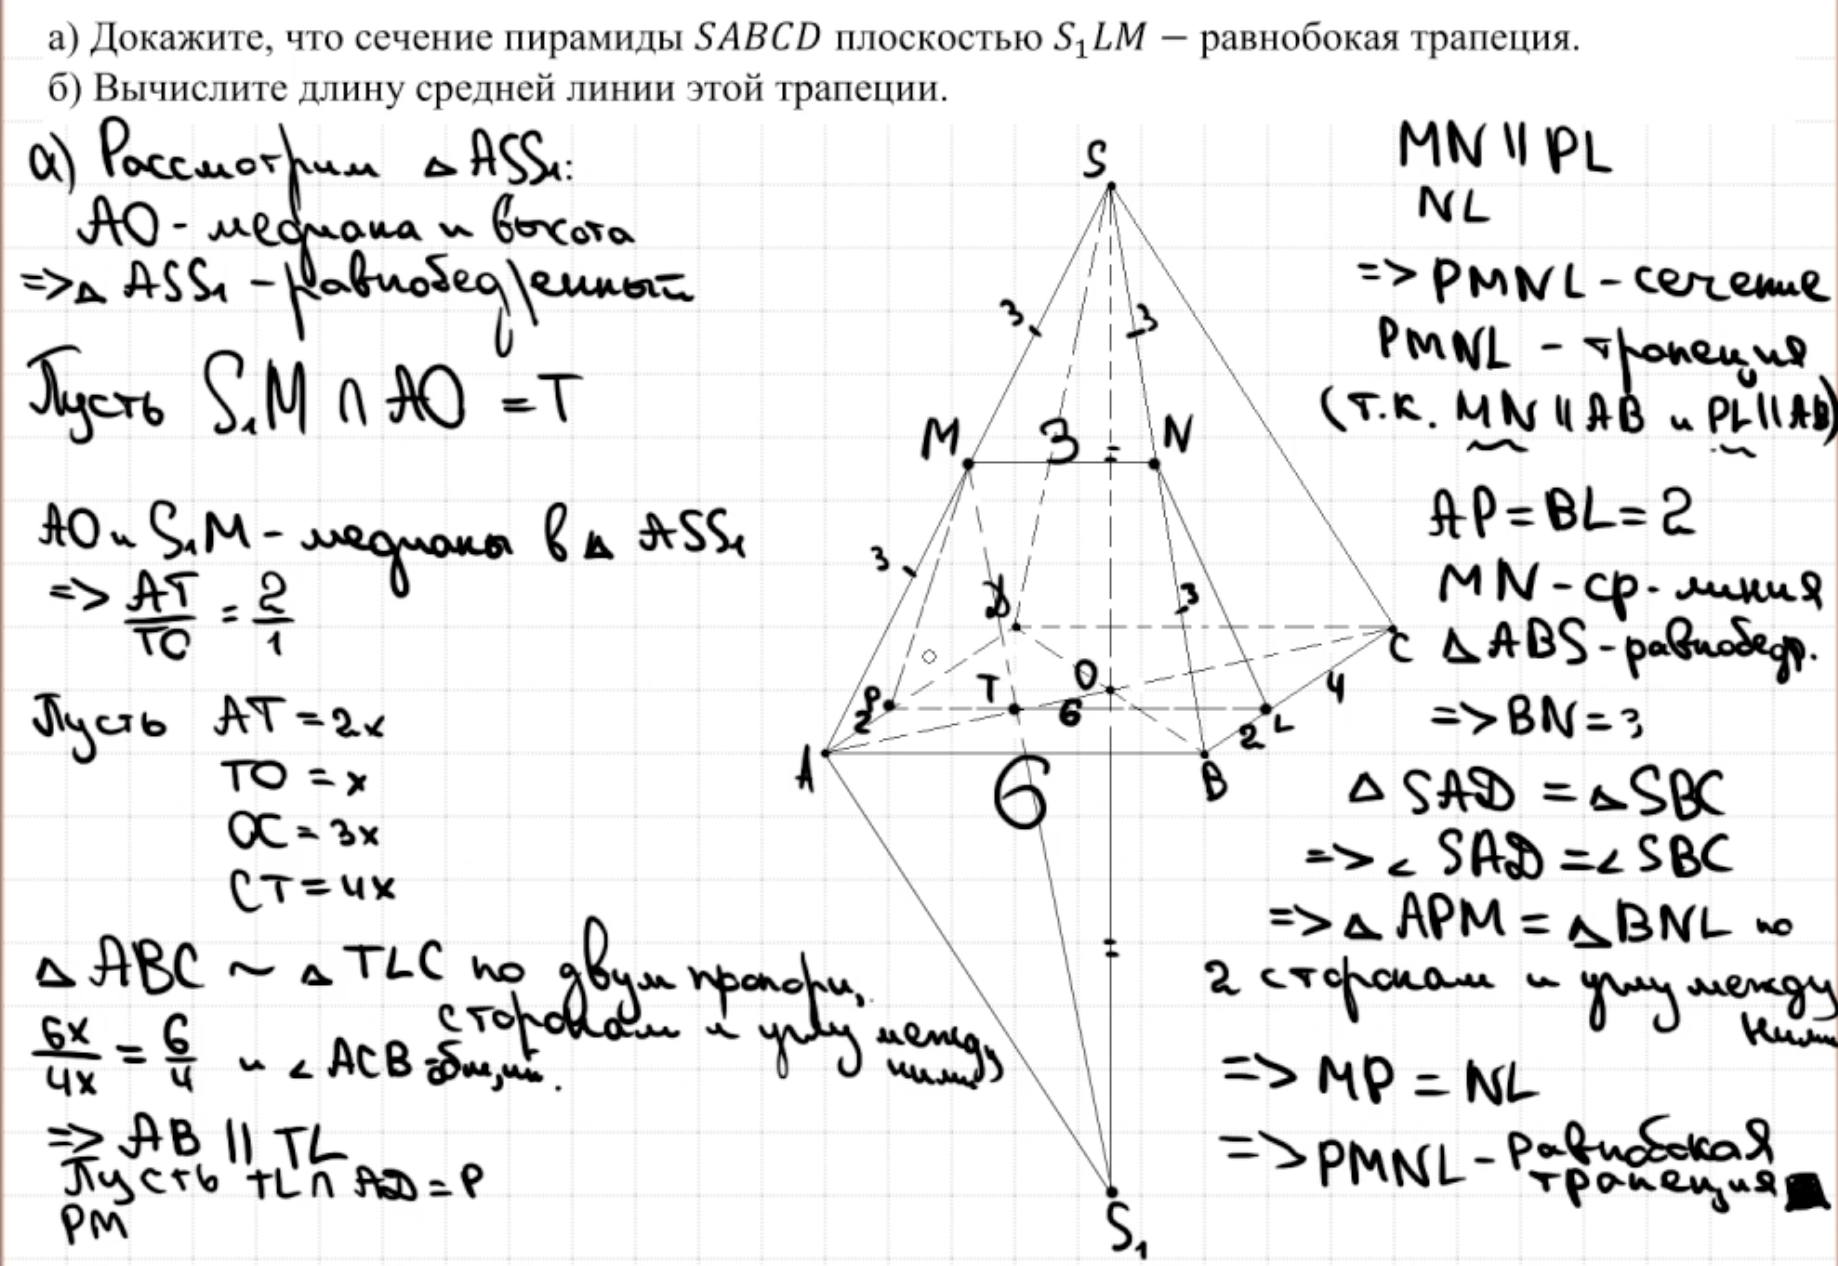 а) Докажите, что сечение пирамиды SABCD плоскостью S₁LM − равнобокая трапеция.
б) Вычислите длину средней линии этой трапеции.
а) Рассмотрим △ ASS₁:
AO - медиана и высота
=> △ ASS₁ - равнобедренный
Пусть S₁M ∩ AO = T
AO и S₁M - медианы в △ ASS₁
=> AT/TO = 2/1
Пусть AT = 2x
TO = x
OC = 3x
CT = 4x
△ ABC ~ △ TLC по двум пропорц.
сторонам и углу между
ними
6x/4x = 6/4 и ∠ ACB - общий.
=> AB || TL
Пусть TL ∩ AD = P
PM
S
3
3
M
3
N
3
3
D
C
P
T
O
6
4
2
2
L
A
6
B
S₁
MN || PL
NL
=> PMNL - сечение
PMNL - трапеция
(т.к. MN || AB и PL || AB)
AP = BL = 2
MN - ср. линия
△ ABS - равнобедр.
=> BN = 3
△ SAD = △ SBC
=> ∠ SAD = ∠ SBC
=> △ APM = △ BNL по
2 сторонам и углу между
ними
=> MP = NL
=> PMNL - равнобокая
трапеция